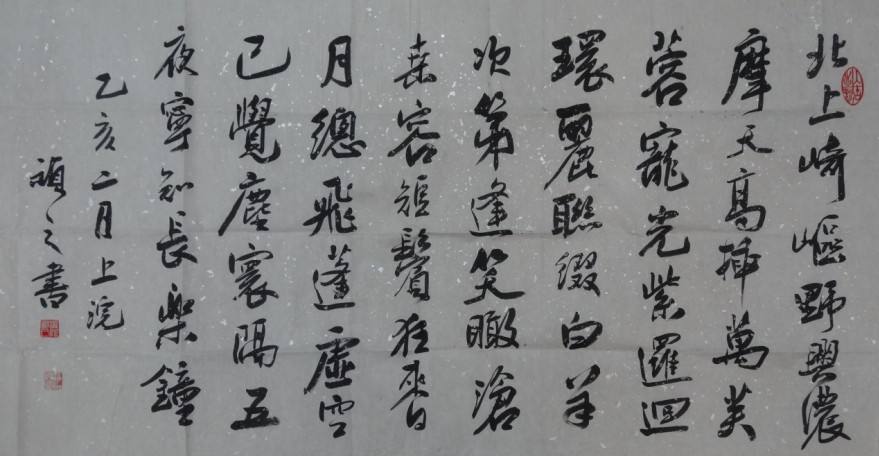 北上崎嶇野興濃
摩天高插萬芙
蓉寵光紫邏迴
環麗聯綴白羊
次第逢笑瞰滄
桒容短鬢狂來日
月總飛蓬虛空
已覺塵寰隔五
夜寧知長樂鐘
乙亥二月上浣
禎之書